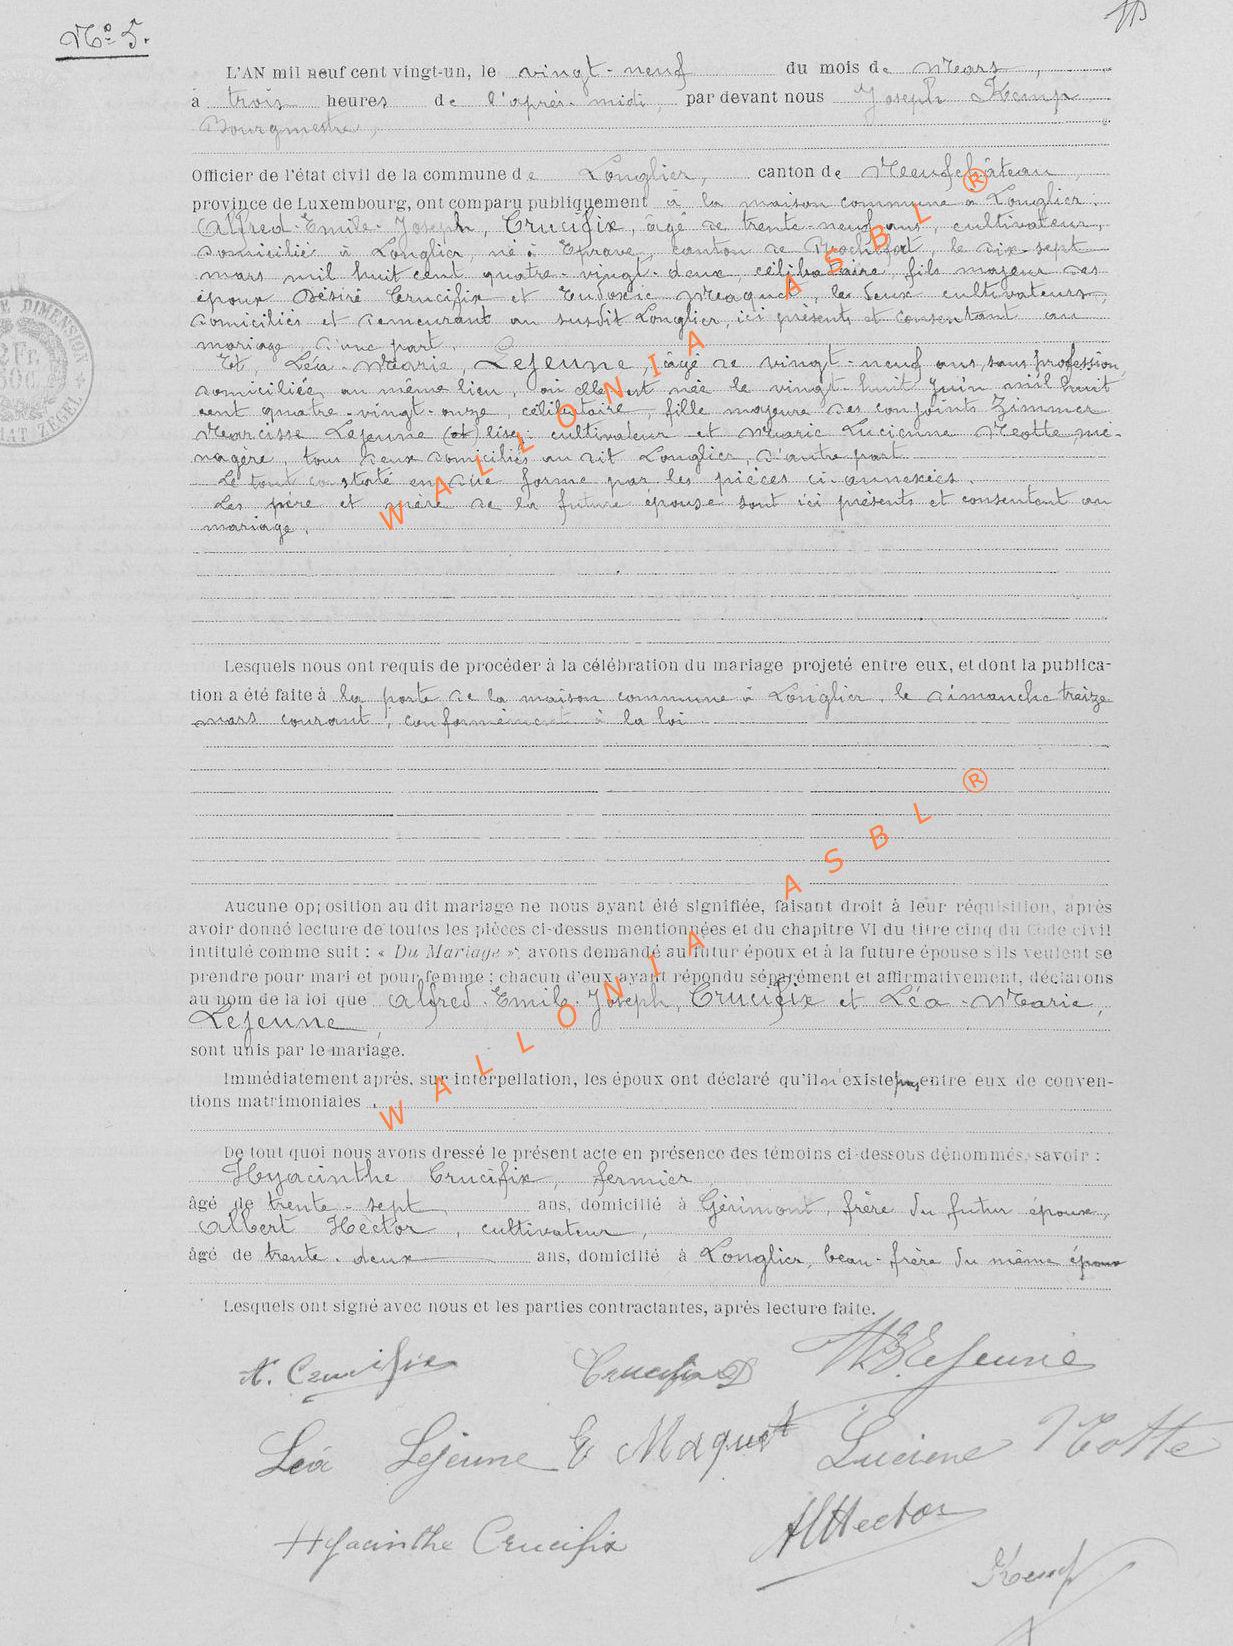 No 5.
L'AN mil neuf cent vingt-un, le vingt-neuf du mois de Mars,
à trois heures de l'après-midi, par devant nous Joseph Kemp
Bourgmestre,
Officier de l'état civil de la commune de Longlier, canton de Neufchâteau,
province de Luxembourg, ont comparu publiquement à la maison commune à Longlier :
Alfred-Emile-Joseph, Crucifix, âgé de trente-neuf ans, cultivateur,
domicilié à Longlier, né à Eprave, canton de Rochefort, le dix-sept
mars mil huit cent quatre-vingt-deux, célibataire, fils majeur des
époux Désiré Crucifix et Eudoxie Maquet, les deux cultivateurs,
domiciliés et demeurant au susdit Longlier, ici présents et consentant au
mariage, d'une part.
Et, Léa-Marie, Lejeune, âgé de vingt-neuf ans, sans profession,
domiciliée au même lieu, où elle est née le vingt-huit Juin mil huit
cent quatre-vingt-onze, célibataire, fille majeure des conjoints Zimmer
Narcisse Lejeune (et) lisez: cultivateur et Marie Lucienne Notte mé-
nagère, tous deux domiciliés au dit Longlier, d'autre part.
Le tout constaté en due forme par les pièces ci-annexées.
Les père et mère de la future épouse sont ici présents et consentent au
mariage.
Lesquels nous ont requis de procéder à la célébration du mariage projeté entre eux, et dont la publica-
tion a été faite à la porte de la maison commune à Longlier, le dimanche treize
mars courant, conformément à la loi
Aucune opposition au dit mariage ne nous ayant été signifiée, faisant droit à leur réquisition, après
avoir donné lecture de toutes les pièces ci-dessus mentionnées et du chapitre VI du titre cinq du Code civil
intitulé comme suit : « Du Mariage », avons demandé au futur époux et à la future épouse s'ils veulent se
prendre pour mari et pour femme ; chacun d'eux ayant répondu séparément et affirmativement, déclarons
au nom de la loi que Alfred-Emile-Joseph, Crucifix et Léa-Marie,
Lejeune,
sont unis par le mariage.
Immédiatement après, sur interpellation, les époux ont déclaré qu'il n'existe pas entre eux de conven-
tions matrimoniales.
De tout quoi nous avons dressé le présent acte en présence des témoins ci-dessous dénommés, savoir :
Hyacinthe Crucifix, fermier
âgé de trente-sept ans, domicilié à Gérimont, frère du futur époux,
Albert Hector, cultivateur,
âgé de trente-deux ans, domicilié à Longlier, beau-frère du même époux
Lesquels ont signé avec nous et les parties contractantes, après lecture faite.
A. Crucifix Crucifix D Lejeune
Léa Lejeune E Maquet Luciene Notte
Hyacinthe Crucifix Al Hector
Kemp
WALLONIA ASBL ®
WALLONIA ASBL ®